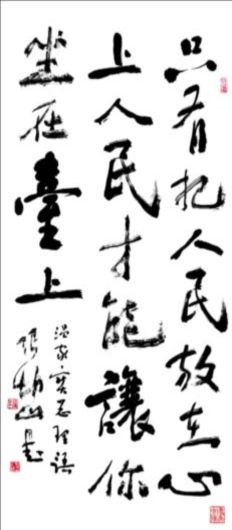 只有把人民放在心
上人民才能讓你
坐在臺上
温家寶总理語